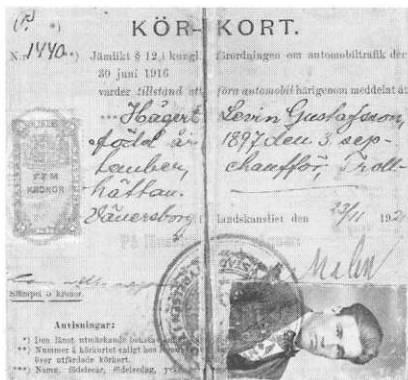 (P. *)
KÖR-KORT.
N:r 1440 **) Jämlikt § 12 i kungl. förordningen om automobiltrafik den
30 juni 1916
varder tillstånd att föra automobil härigenom meddelat åt
Hägert Levin Gustafsson,
född år 1897 den 3 sep-
tember, chaufför, Troll-
hättan.
FEM
KRONOR
Vänersborg landskansliet den 23/11 192
På
Malin
Stämpel 5 kronor.
Anvisningar:
*) Den länst utmärkande bokstav
**) Nummer å körkortet enligt hos
över utfärdade körkort.
***) Namn, födelseår, födelsedag,